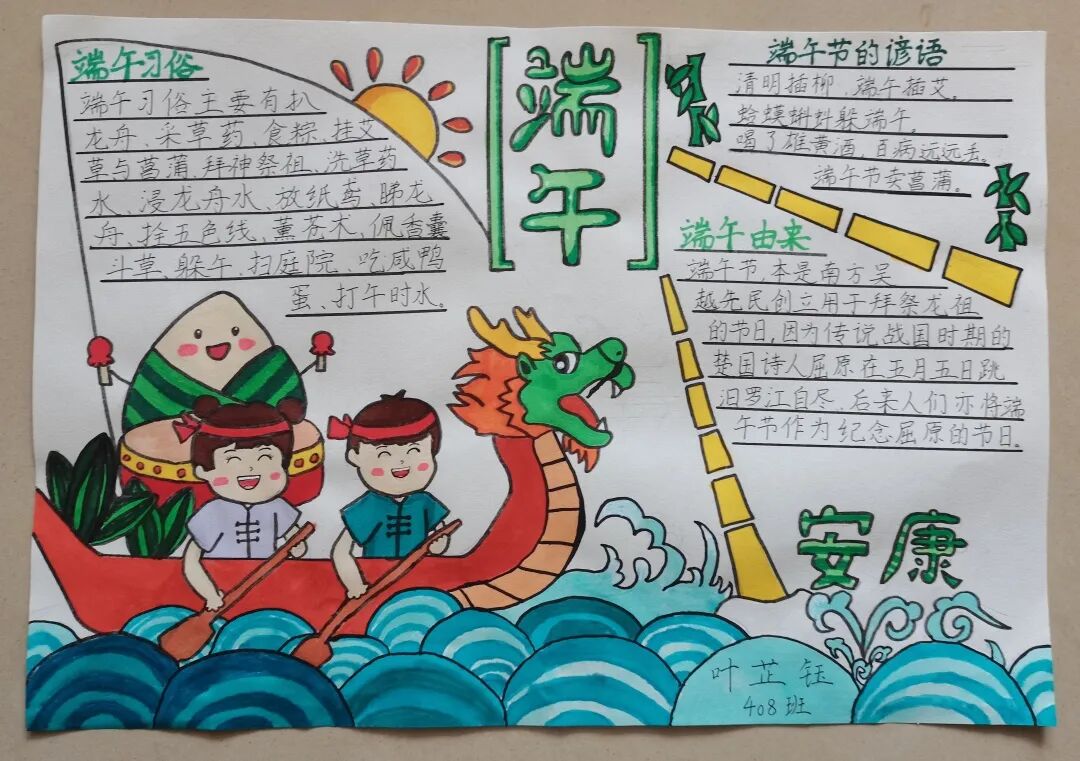 端午习俗
端午习俗主要有扒
龙舟、采草药、食粽、挂艾
草与菖蒲、拜神祭祖、洗草药
水、浸龙舟水、放纸鸢、睇龙
舟、拴五色线、薰苍术、佩香囊
斗草、躲午、扫庭院、吃咸鸭
蛋、打午时水。
端
午
端午节的谚语
清明插柳、端午插艾。
蛤蟆蝌蚪躲端午。
喝了雄黄酒,百病远远丢。
端午节卖菖蒲。
端午由来
端午节,本是南方吴
越先民创立用于拜祭龙祖
的节日,因为传说战国时期的
楚国诗人屈原在五月五日跳
汨罗江自尽,后来人们亦将端
午节作为纪念屈原的节日.
安康
叶芷钰
408班